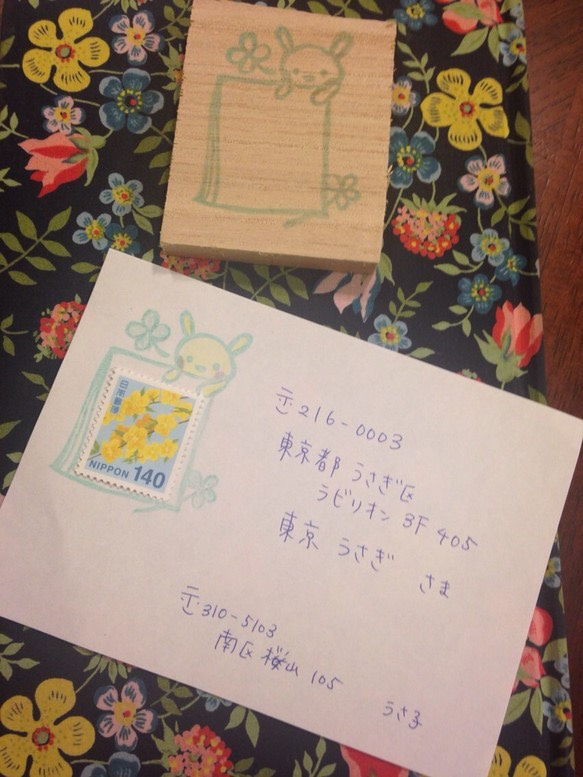 日本郵便
NIPPON 140
〒216-0003
東京都 うさぎ区
ラビリオン 3F 405
東京 うさぎ さま
〒310-5103
南区 桜山 105
うさ子